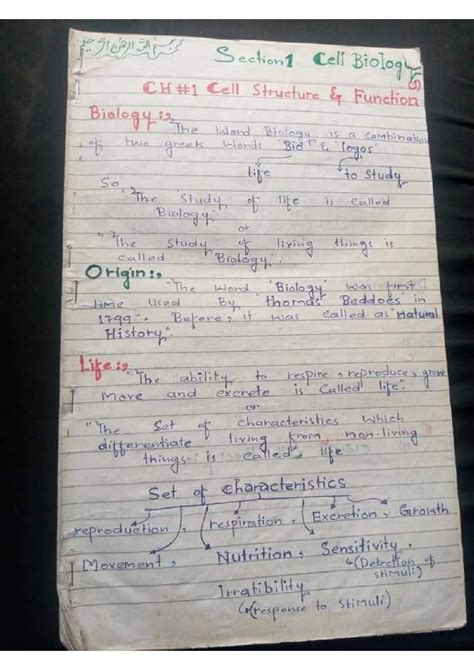 بسم اللہ الرحمن الرحیم
Section 1 Cell Biology
CH#1 Cell Structure & Function
Biology:,
"The word Biology is a combination
of two greek words "Bio" & "logos"
life to study
So,
"The study of life is called
Biology"
or
"The study of living things is
called Biology".
Origin:,
"The word "Biology" was first
time used By "thomas Beddoes" in
1799. Before, it was called as "Natural
History".
Life:,
"The ability to respire, reproduce, grow
Move and excrete is called life".
or
"The Set of characteristics which
differentiate living from non-living
things is called, life"
Set of characteristics
reproduction, respiration, Excretion, Growth
Movement, Nutrition, Sensitivity.
↳(Detection of
stimuli)
Irratibility
↳(response to stimuli)